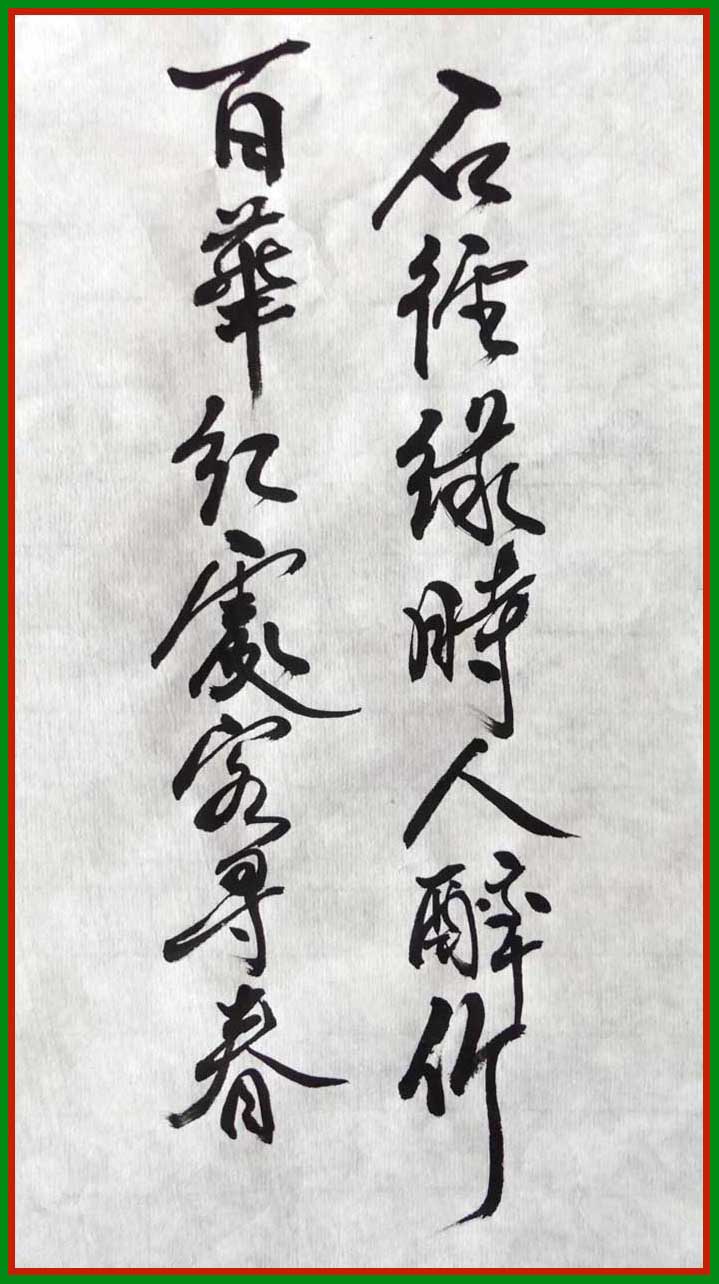 石徑綠時人醉竹
百華紅處客尋春